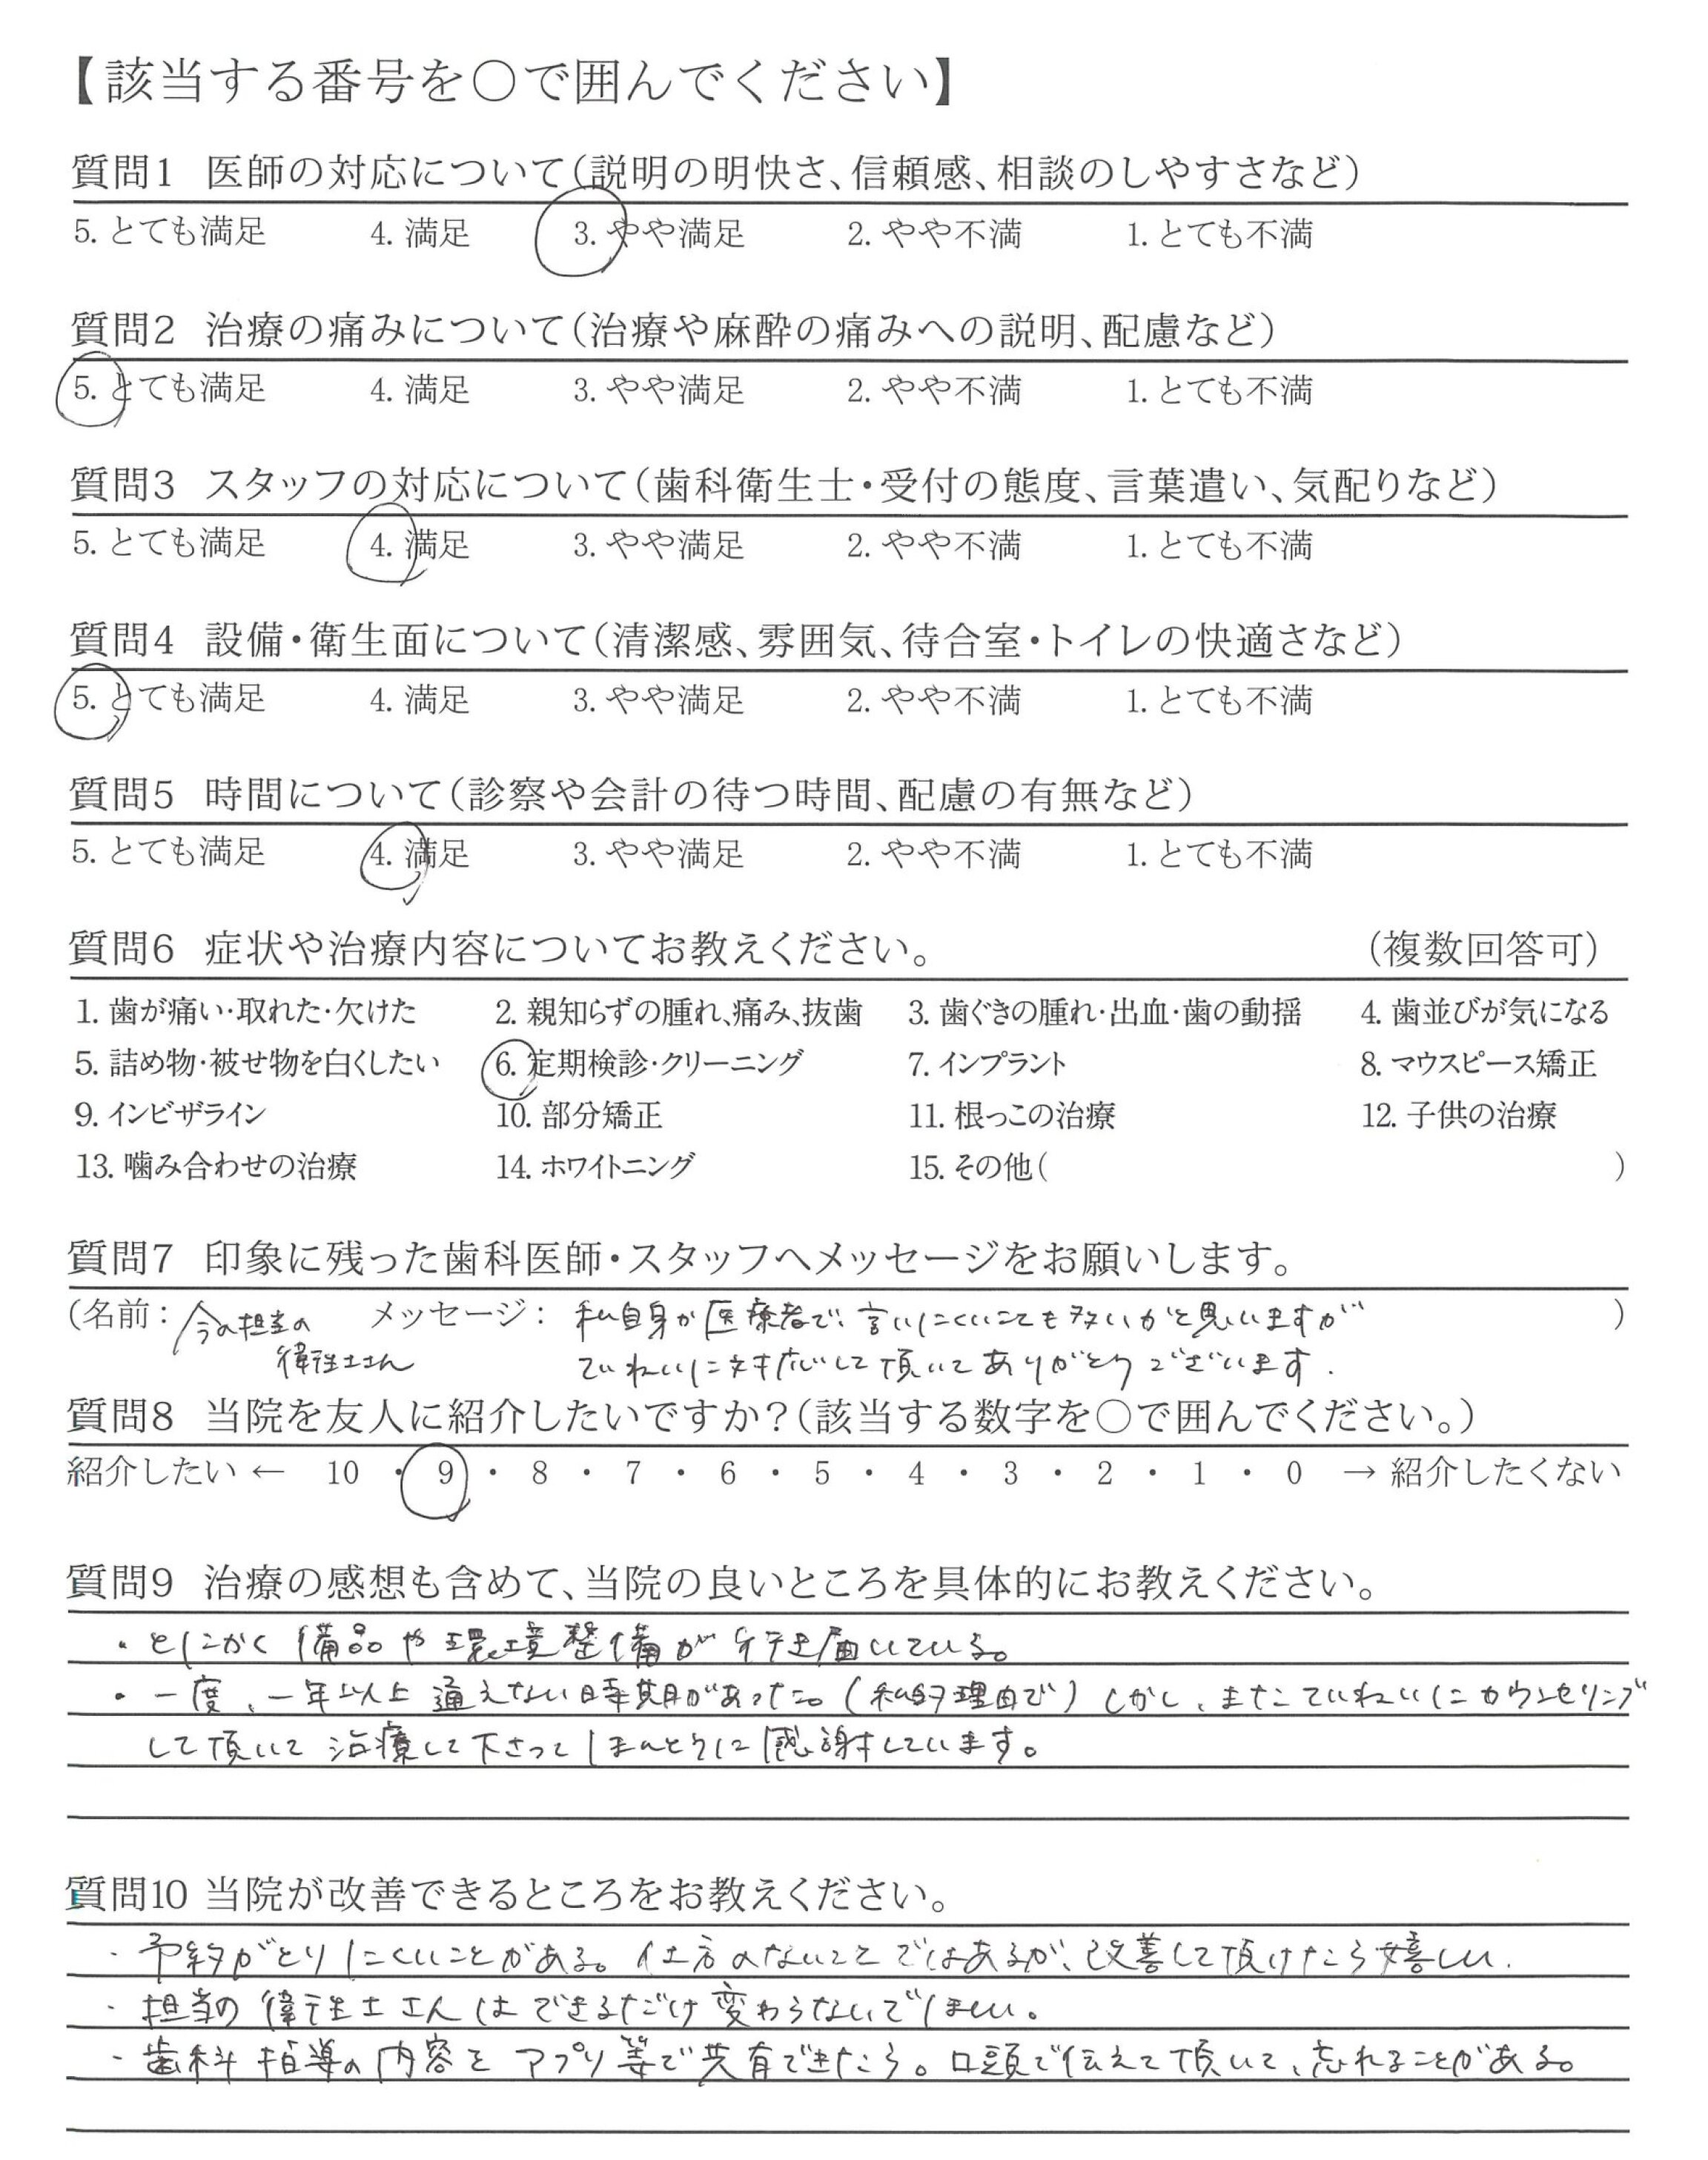 【該当する番号を○で囲んでください】
質問1 医師の対応について(説明の明快さ、信頼感、相談のしやすさなど)
5. とても満足 4. 満足 3. やや満足 2. やや不満 1. とても不満
質問2 治療の痛みについて(治療や麻酔の痛みへの説明、配慮など)
5. とても満足 4. 満足 3. やや満足 2. やや不満 1. とても不満
質問3 スタッフの対応について(歯科衛生士・受付の態度、言葉遣い、気配りなど)
5. とても満足 4. 満足 3. やや満足 2. やや不満 1. とても不満
質問4 設備・衛生面について(清潔感、雰囲気、待合室・トイレの快適さなど)
5. とても満足 4. 満足 3. やや満足 2. やや不満 1. とても不満
質問5 時間について(診察や会計の待つ時間、配慮の有無など)
5. とても満足 4. 満足 3. やや満足 2. やや不満 1. とても不満
質問6 症状や治療内容についてお教えください。 (複数回答可)
1. 歯が痛い・取れた・欠けた 2. 親知らずの腫れ、痛み、抜歯 3. 歯ぐきの腫れ・出血・歯の動揺 4. 歯並びが気になる
5. 詰め物・被せ物を白くしたい 6. 定期検診・クリーニング 7. インプラント 8. マウスピース矯正
9. インビザライン 10. 部分矯正 11. 根っこの治療 12. 子供の治療
13. 噛み合わせの治療 14. ホワイトニング 15. その他( )
質問7 印象に残った歯科医師・スタッフへメッセージをお願いします。
(名前: 今の担当の メッセージ: 私自身が医療者で、言いにくいことも多いかと思いますが )
衛生士さん ていねいに対応して頂いてありがとうございます.
質問8 当院を友人に紹介したいですか?(該当する数字を○で囲んでください。)
紹介したい ← 10 ・ 9 ・ 8 ・ 7 ・ 6 ・ 5 ・ 4 ・ 3 ・ 2 ・ 1 ・ 0 → 紹介したくない
質問9 治療の感想も含めて、当院の良いところを具体的にお教えください。
・とにかく備品や環境整備が行き届いている。
・一度、一年以上通えない時期があった。(私的理由で) しかし、またていねいにカウンセリング
して頂いて治療して下さってほんとうに感謝しています。
質問10 当院が改善できるところをお教えください。
・予約がとりにくいことがある。仕方のないことではあるが、改善して頂けたら嬉しい.
・担当の衛生士さんはできるだけ変わらないでほしい。
・歯科指導の内容をアプリ等で共有できたら。口頭で伝えて頂いて、忘れることがある。